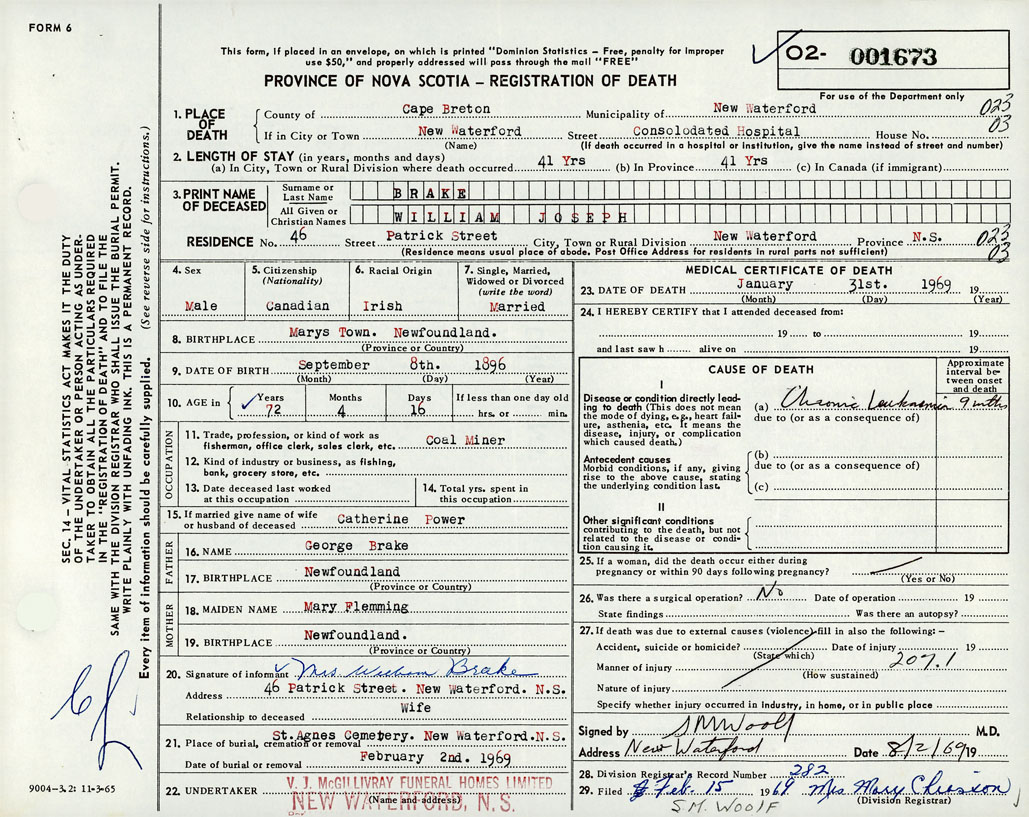 FORM 6
This form, if placed in an envelope, on which is printed "Dominion Statistics – Free, penalty for improper
use $50," and properly addressed will pass through the mail "FREE"
PROVINCE OF NOVA SCOTIA – REGISTRATION OF DEATH
O2- 001673
For use of the Department only
023
03
1. PLACE OF DEATH
County of Cape Breton Municipality of New Waterford
If in City or Town New Waterford Street Consolodated Hospital House No.
(Name) (If death occurred in a hospital or institution, give the name instead of street and number)
2. LENGTH OF STAY (in years, months and days)
(a) In City, Town or Rural Division where death occurred 41 Yrs (b) In Province 41 Yrs (c) In Canada (if immigrant)
3. PRINT NAME OF DECEASED
Surname or Last Name BRAKE
All Given or Christian Names WILLIAM JOSEPH
RESIDENCE No. 46 Street Patrick Street City, Town or Rural Division New Waterford Province N.S. 023
03
(Residence means usual place of abode. Post Office Address for residents in rural parts not sufficient)
4. Sex
Male
5. Citizenship
(Nationality)
Canadian
6. Racial Origin
Irish
7. Single, Married,
Widowed or Divorced
(write the word)
Married
8. BIRTHPLACE Marys Town. Newfoundland.
(Province or Country)
9. DATE OF BIRTH September 8th. 1896
(Month) (Day) (Year)
10. AGE in Years Months Days If less than one day old
72 4 16 hrs. or min.
OCCUPATION
11. Trade, profession, or kind of work as
fisherman, office clerk, sales clerk, etc. Coal Miner
12. Kind of industry or business, as fishing,
bank, grocery store, etc.
13. Date deceased last worked
at this occupation
14. Total yrs. spent in
this occupation
15. If married give name of wife
or husband of deceased Catherine Power
FATHER
16. NAME George Brake
17. BIRTHPLACE Newfoundland
(Province or Country)
MOTHER
18. MAIDEN NAME Mary Flemming
19. BIRTHPLACE Newfoundland.
(Province or Country)
20. Signature of informant Mrs William Brake
Address 46 Patrick Street. New Waterford. N.S.
Relationship to deceased Wife
21. Place of burial, cremation or removal St.Agnes Cemetery. New Waterford.N.S.
Date of burial or removal February 2nd. 1969
22. UNDERTAKER V. J. McGILLIVRAY FUNERAL HOMES LIMITED
(Name and address)
NEW WATERFORD, N. S.
MEDICAL CERTIFICATE OF DEATH
23. DATE OF DEATH January 31st. 1969 19
(Month) (Day) (Year)
24. I HEREBY CERTIFY that I attended deceased from:
19 to 19
and last saw h alive on 19
CAUSE OF DEATH
Approximate
interval be-
tween onset
and death
I
Disease or condition directly lead-
ing to death (This does not mean
the mode of dying, e.g., heart fail-
ure, asthenia, etc. It means the
disease, injury, or complication
which caused death.)
(a) Chronic Leukaemia 9 mths
due to (or as a consequence of)
Antecedent causes
Morbid conditions, if any, giving
rise to the above cause, stating
the underlying condition last.
(b)
due to (or as a consequence of)
(c)
II
Other significant conditions
contributing to the death, but not
related to the disease or condi-
tion causing it.
25. If a woman, did the death occur either during
pregnancy or within 90 days following pregnancy?
(Yes or No)
26. Was there a surgical operation? No Date of operation 19
State findings Was there an autopsy?
27. If death was due to external causes (violence) fill in also the following: –
Accident, suicide or homicide? Date of injury 19
(State which) 207.1
Manner of injury
(How sustained)
Nature of injury
Specify whether injury occurred in industry, in home, or in public place
Signed by S M Woolf M.D.
Address New Waterford Date 8/2/69 19
28. Division Registrar's Record Number 282
29. Filed Feb. 15 1969 Mrs Mary Chiasson
(Division Registrar)
S.M. WOOLF
SEC. 14 – VITAL STATISTICS ACT MAKES IT THE DUTY
OF THE UNDERTAKER OR PERSON ACTING AS UNDER-
TAKER TO OBTAIN ALL THE PARTICULARS REQUIRED
IN THE "REGISTRATION OF DEATH" AND TO FILE THE
SAME WITH THE DIVISION REGISTRAR WHO SHALL ISSUE THE BURIAL PERMIT.
WRITE PLAINLY WITH UNFADING INK. THIS IS A PERMANENT RECORD.
Every item of information should be carefully supplied. (See reverse side for instructions.)
9004-3.2: 11-3-65